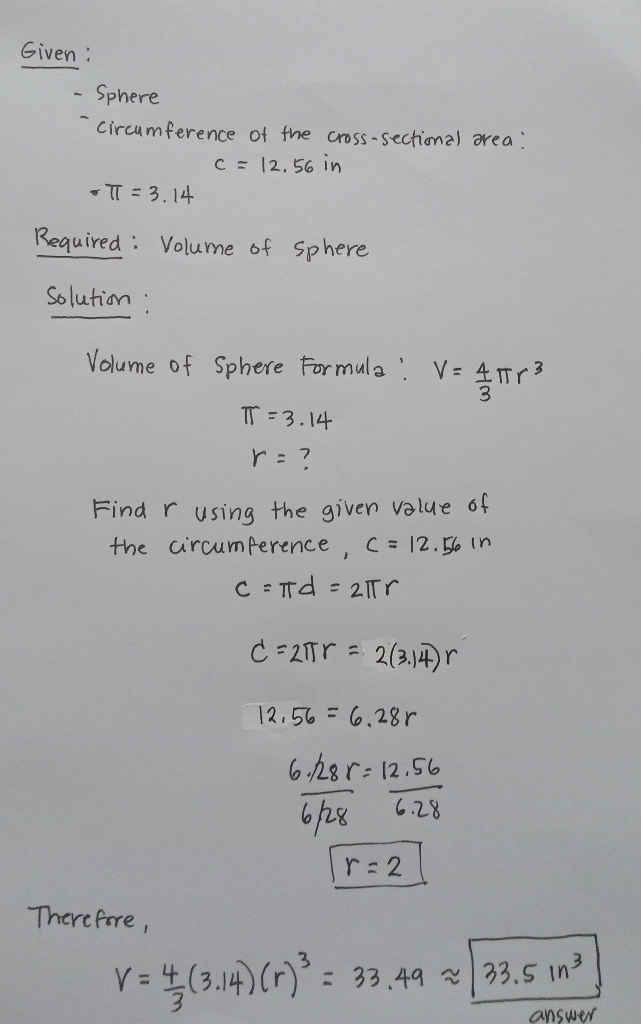 Given :
- Sphere
- Circumference of the cross-sectional area :
C = 12.56 in
- π = 3.14
Required : Volume of Sphere
Solution :
Volume of Sphere Formula : V = 4/3 πr³
π = 3.14
r = ?
Find r using the given value of
the circumference, C = 12.56 in
C = πd = 2πr
C = 2πr = 2(3.14)r
12.56 = 6.28r
6.28r = 12.56
6.28 6.28
r = 2
Therefore,
V = 4/3 (3.14)(r)³ = 33.49 ≈ 33.5 in³
answer